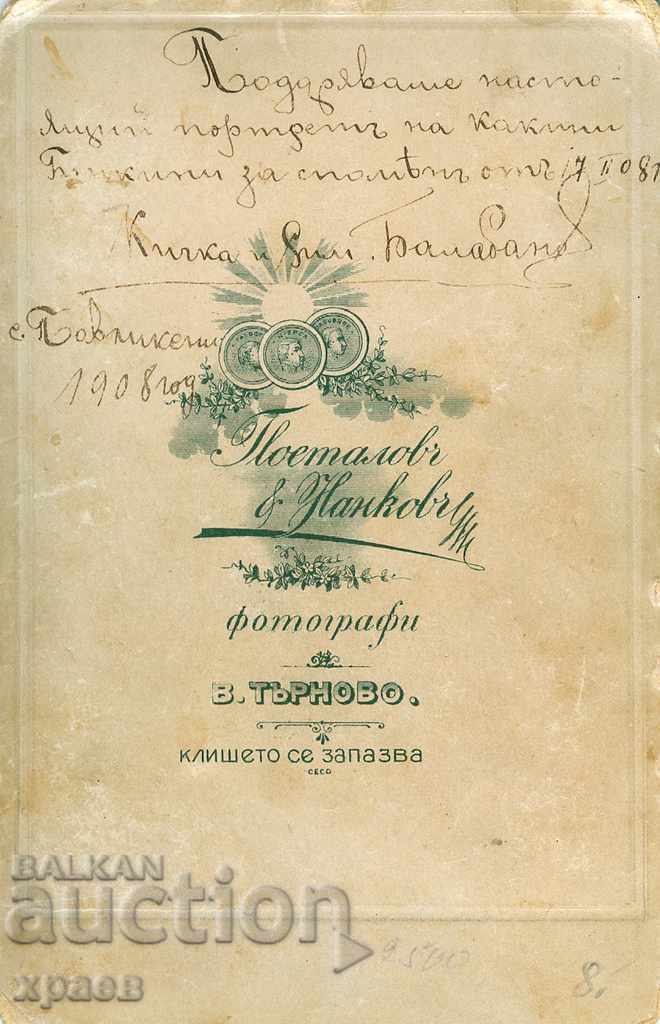 Поддряваме насто-
ящий портретъ на какини
за споменъ отъ 17 II 08
Кичка и Дим. Балабанов
с. Павликени
1908 год
Поеталовъ
& Нанковъ
фотографи
В. ТЪРНОВО.
КЛИШЕТО СЕ ЗАПАЗВА
СЕСО
BALKAN
auction
храев
8.